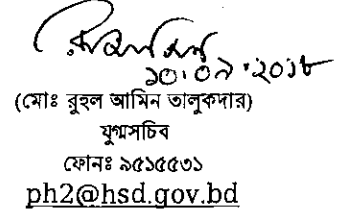 ১০.০৯.২০১৮
(মোঃ রুহুল আমিন তালুকদার)
যুগ্মসচিব
ফোনঃ ৯৫১৫৫৩১
ph2@hsd.gov.bd